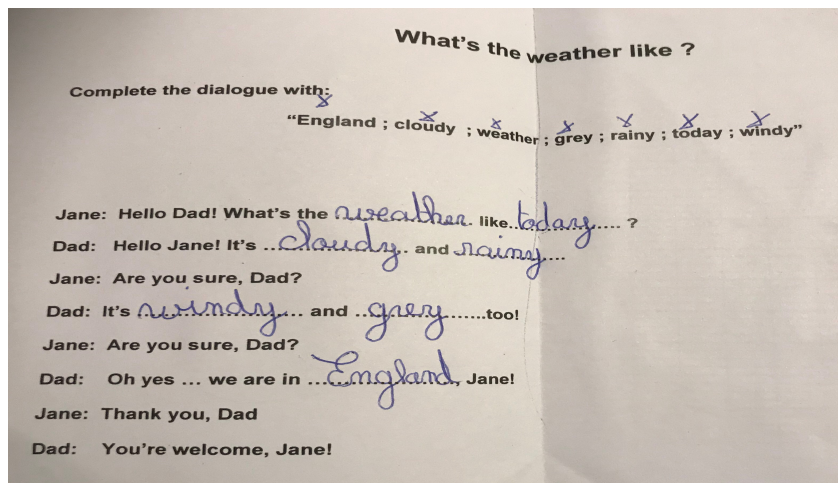 What's the weather like ?
Complete the dialogue with:
“England ; cloudy ; weather ; grey ; rainy ; today ; windy”
Jane: Hello Dad! What's the weather like today ?
Dad: Hello Jane! It's cloudy and rainy
Jane: Are you sure, Dad?
Dad: It's windy and grey too!
Jane: Are you sure, Dad?
Dad: Oh yes ... we are in England, Jane!
Jane: Thank you, Dad
Dad: You're welcome, Jane!